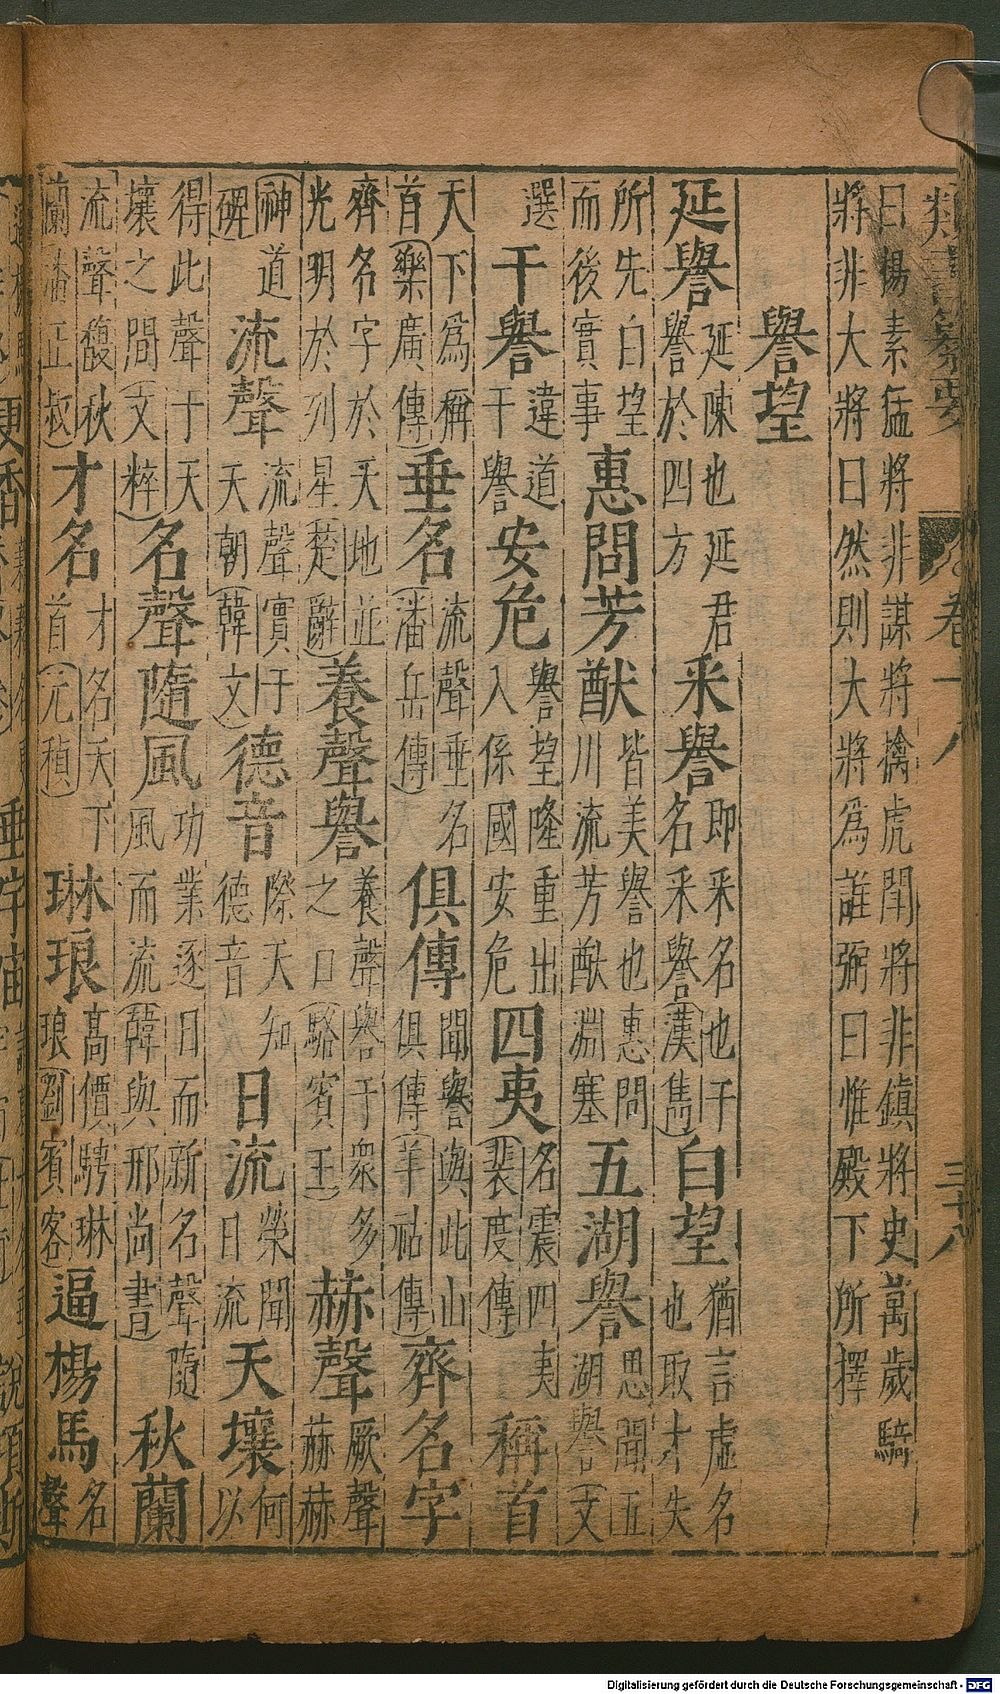 類書纂要 卷十八 三十八
曰楊素猛將非謀將擒虎鬥將非鎮將史萬歲騎
將非大將曰然則大將爲誰弼曰惟殿下所擇
譽望
延譽 延陳也延君譽於四方 采譽 即采名也干名采譽(漢雋) 白望 猶言虛名也取才失
所先白望而後實事 惠問芳猷 皆美譽也惠問川流芳猷淵塞 五湖譽 思聞五湖譽(文
選 干譽 違道干譽 安危 譽望隆重出入係國安危 四夷 名震四夷(裴度傳) 稱首
天下爲稱首(樂廣傳) 垂名 流聲垂名(潘岳傳) 俱傳 聞譽與此山俱傳(羊祜傳) 齊名字
齊名字於天地並光明於列星(楚辭) 養聲譽 養聲譽于衆多之口(駱賓王) 赫聲 厥聲赫赫
(神道碑) 流聲 流聲實于天朝(韓文) 德音 際天知德音 日流 榮聞日流 天壤 何以
得此聲于天壤之間(文粹) 名聲隨風 功業逐日而新名聲隨風而流(韓與邢尚書) 秋蘭
流聲馥秋蘭(潘正叔) 才名 才名天下首(元稹) 琳琅 高價聘琳琅(劉賓客) 逼楊馬 名聲
Digitalisierung gefördert durch die Deutsche Forschungsgemeinschaft - DFG